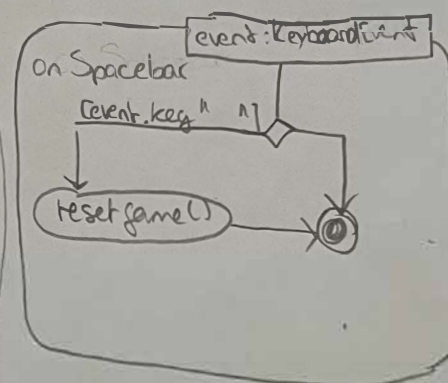 event: KeyboardEvent
on Spacebar
[event.key " "]
resetgame()